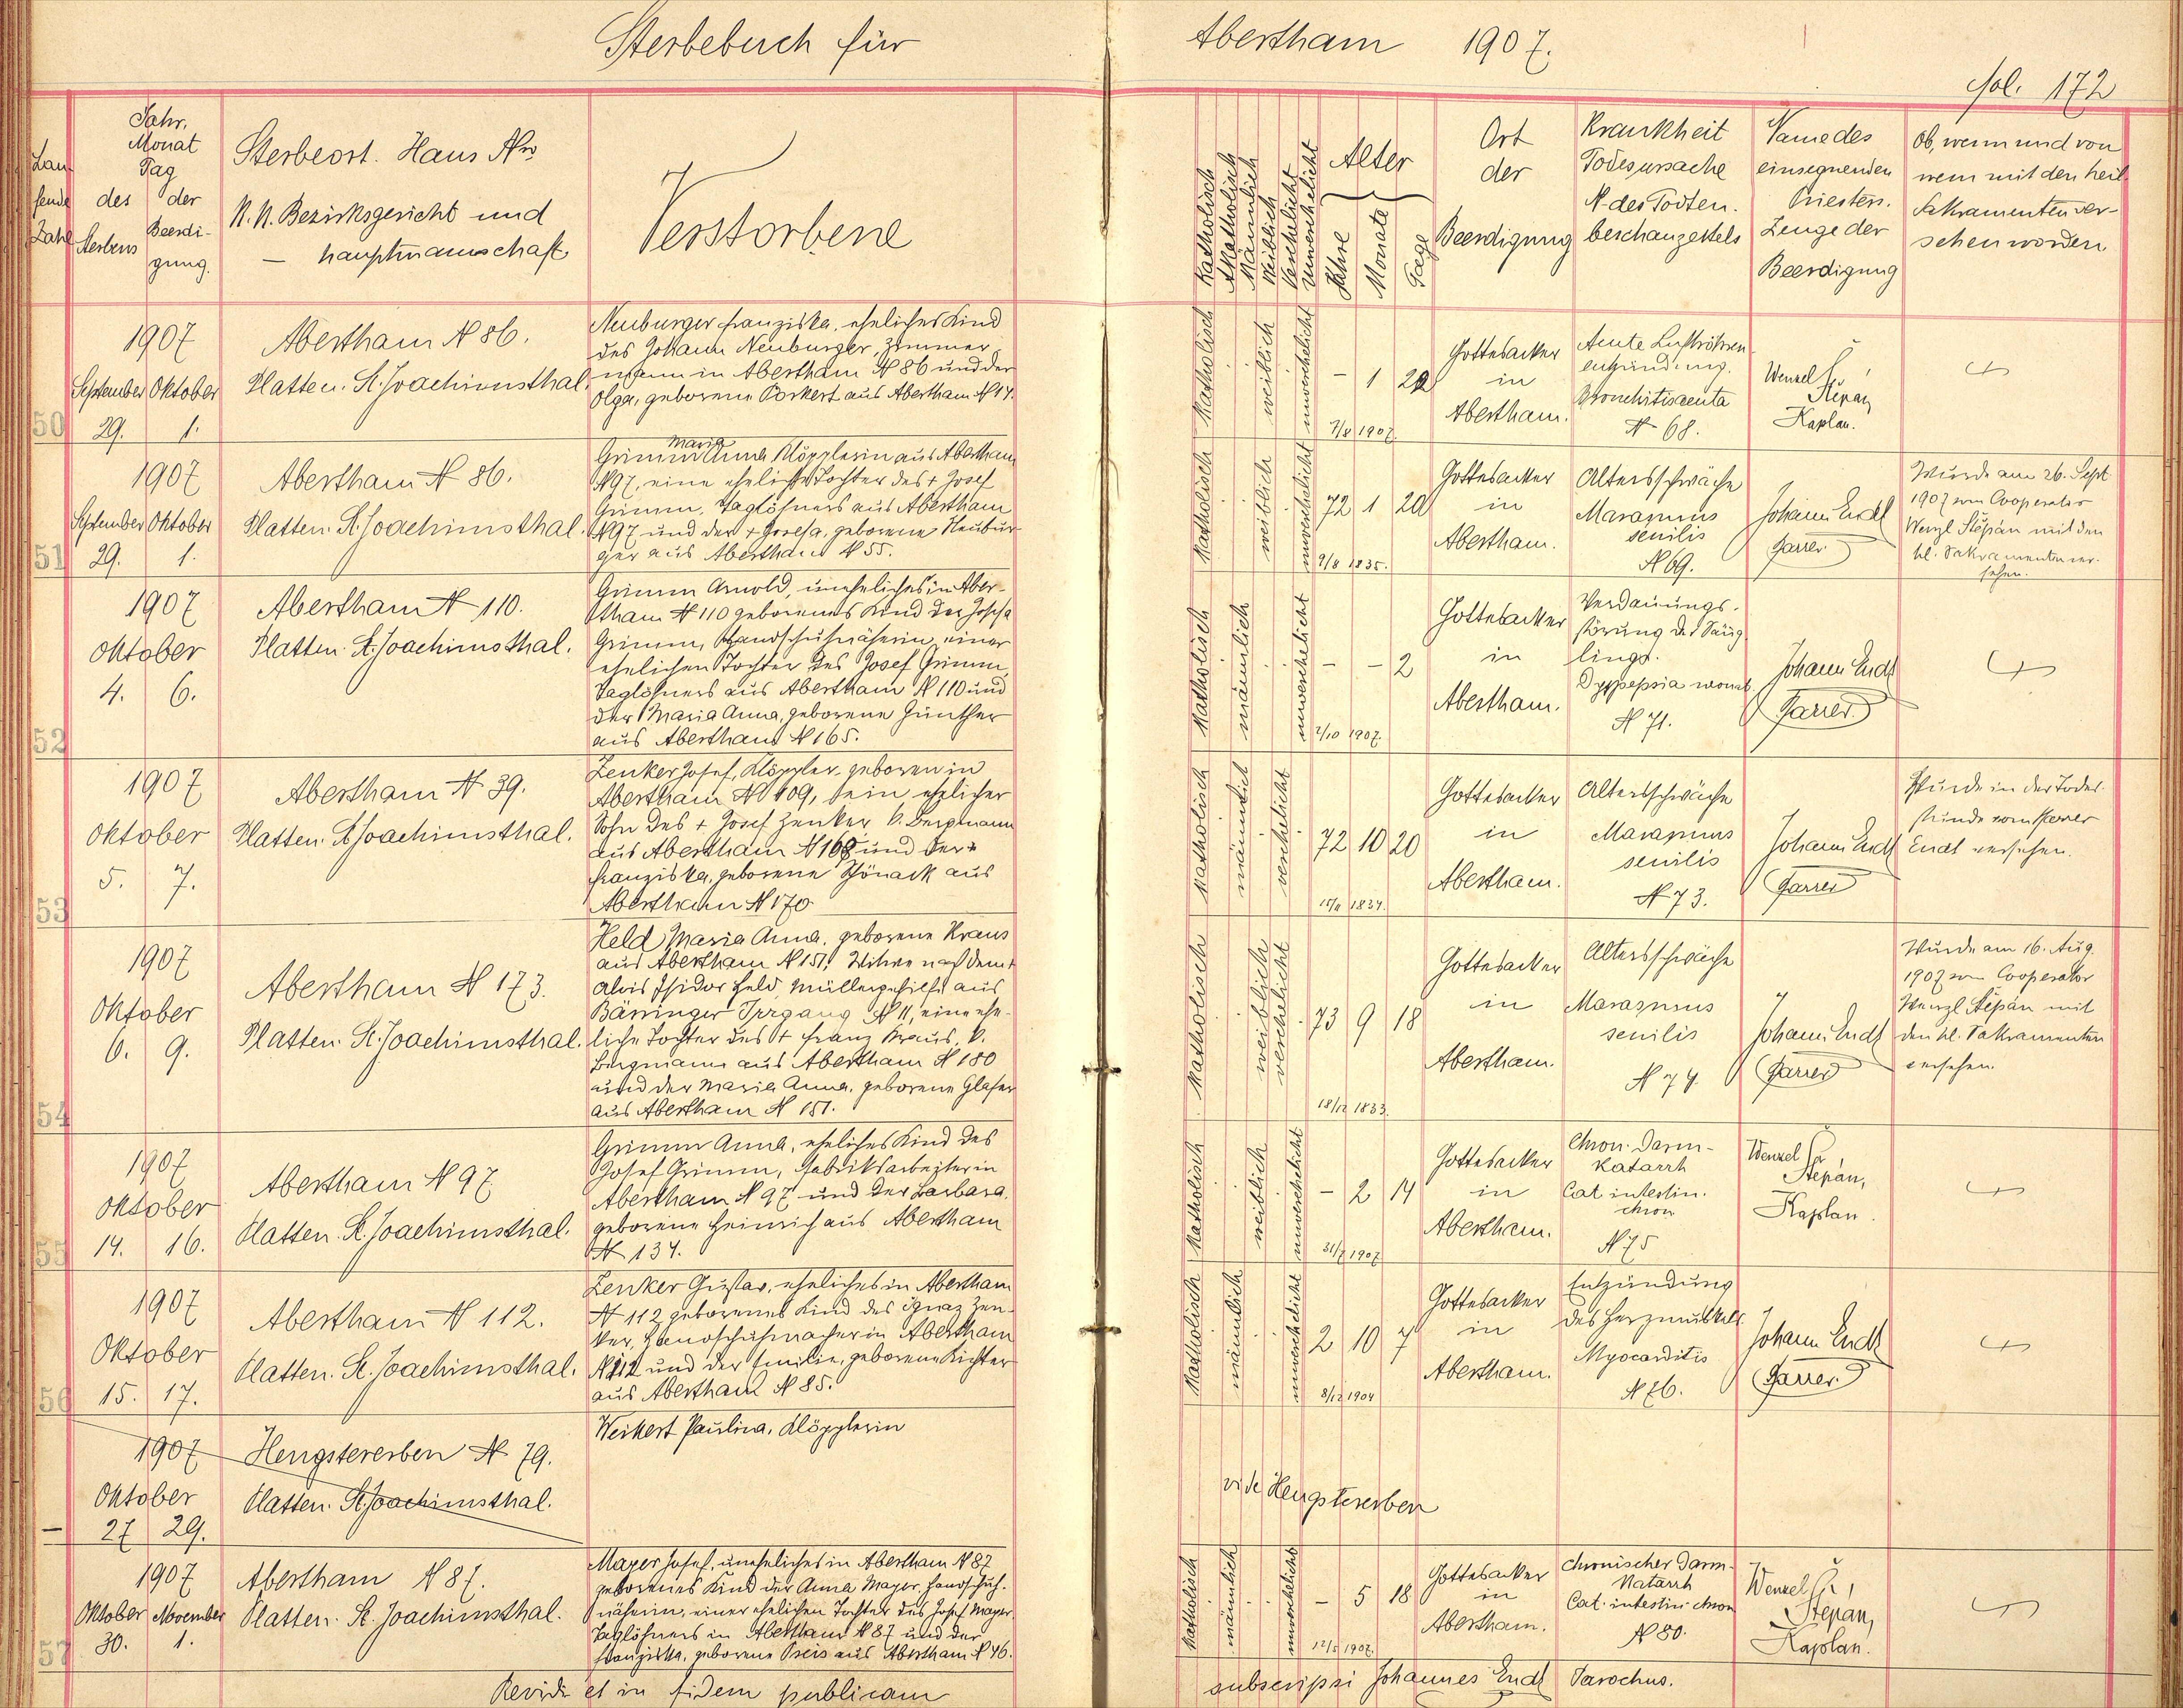 Sterbebuch für Abertham 1907.
fol. 172
Lau-
fende
Zahl
Jahr,
Monat
Tag
des der
Sterbens Beerdi-
gung.
Sterbeort. Haus No
K. K. Bezirksgericht und
— hauptmannschaft
Verstorbene
Katholisch
Akatholisch
Männlich
Weiblich
Verehelicht
Unverehelicht
Alter
Jahre
Monate
Tage
Ort
der
Beerdigung
Krankheit
Todesursache
N. des Todten-
beschauzettels
Name des
einsegnenden
Priesters.
Zeuge der
Beerdigung
Ob, wenn und von
wem mit den heil.
Sakramenten ver-
sehen worden
50
1907
September Oktober
29. 1.
Abertham N 86.
Platten. St. Joachimsthal.
Neuburger Franziska, eheliches Kind
des Johann Neuburger, Zimmer-
mann in Abertham N 86 und der
Olga, geborene Porkert aus Abertham N 17.
Katholisch
weiblich
unverehelicht
– 1 22
7/8 1907.
Gottesacker
in
Abertham.
Acute Luftröhren-
entzündung.
Bronchitis acuta
N 68.
Wenzel
Štěpán,
Kaplan.
51
1907
September Oktober
29. 1.
Abertham N 86.
Platten. St. Joachimsthal.
Maria
Grimm Anna Klöpplerin aus Abertham
N 97, eine eheliche Tochter des + Josef
Grimm, Taglöhners aus Abertham
N 97 und der + Josefa, geborene Neubur-
ger aus Abertham N 55.
Katholisch
weiblich
unverehelicht
72 1 20
9/8 1835.
Gottesacker
in
Abertham.
Altersschwäche
Marasmus
senilis
N 69.
Johann Endt
Pfarrer
Wurde am 26. Sept.
1907 vom Cooperator
Wenzl Štěpán mit den
hl. Sakramenten ver-
sehen.
52
1907
Oktober
4. 6.
Abertham N 110.
Platten. St. Joachimsthal.
Grimm Arnold, uneheliches, in Aber-
tham N 110 geborenes Kind der Josefa
Grimm, Handschuhnäherin, einer
ehelichen Tochter des Josef Grimm,
Taglöhners aus Abertham N 110 und
der Maria Anna, geborene Günther
aus Abertham N 165.
Katholisch
männlich
unverehelicht
– – 2
2/10 1907.
Gottesacker
in
Abertham.
Verdauungs-
störung des Säug-
lings.
Dyspepsia
N 71.
Johann Endt
Pfarrer.
53
1907
Oktober
5. 7.
Abertham N 39.
Platten. St. Joachimsthal.
Zenker Josef, Klöppler, geboren in
Abertham N 109, sein ehelicher
Sohn des + Josef Zenker, k. Bergmann
aus Abertham N 168 und der +
Franziska, geborene Schönack aus
Abertham N 170
Katholisch
männlich
verehelicht
72 10 20
15/11 1834.
Gottesacker
in
Abertham.
Altersschwäche
Marasmus
senilis
N 73.
Johann Endt
Pfarrer
Wurde in der Todes-
stunde vom Pfarrer
Endt versehen.
54
1907
Oktober
6. 9.
Abertham N 173.
Platten. St. Joachimsthal.
Held Maria Anna, geborene Kraus
aus Abertham N 151, Witwe nach dem +
Alois Isidor Held, Müllergehilfe aus
Bärringer Irrgang N 11, eine ehe-
liche Tochter des + Franz Kraus, k.
Bergmann aus Abertham N 180
und der Maria Anna, geborene Glaser
aus Abertham N 151.
Katholisch
weiblich
verehelicht
73 9 18
18/12 1833.
Gottesacker
in
Abertham.
Altersschwäche
Marasmus
senilis
N 74.
Johann Endt
Pfarrer
Wurde am 16. Aug.
1907 vom Cooperator
Wenzl Štěpán mit
den hl. Sakramenten
versehen.
55
1907
Oktober
14. 16.
Abertham N 97
Platten. St. Joachimsthal.
Grimm Anna, eheliches Kind des
Josef Grimm, Fabriksarbeiter in
Abertham N 97 und der Barbara,
geborene Heinrich aus Abertham
N 134.
Katholisch
weiblich
unverehelicht
– 2 14
31/7 1907
Gottesacker
in
Abertham.
Chron. Darm-
katarrh
Cat. intestin.
chron.
N 75
Wenzel
Štěpán,
Kaplan.
56
1907
Oktober
15. 17.
Abertham N 112.
Platten. St. Joachimsthal.
Zenker Gustav, eheliches in Abertham
N 112 geborenes Kind des Ignaz Zen-
ker, Handschuhmacher in Abertham
N 112 und der Emilie, geborene Richter
aus Abertham N 85.
Katholisch
männlich
unverehelicht
2 10 7
8/12 1904
Gottesacker
in
Abertham.
Entzündung
des Herzmuskels.
Myocarditis
N 76.
Johann Endt
Pfarrer.
–
1907
Oktober
27 29.
Hengstererben N 79.
Platten. St. Joachimsthal.
Weikert Paulina, Klöpplerin
vide Hengstererben
57
1907
Oktober November
30. 1.
Abertham N 87.
Platten. St. Joachimsthal.
Mayer Josef, uneheliches in Abertham N 87
geborenes Kind der Anna Mayer, Handschuh-
näherin, einer ehelichen Tochter des Josef Mayer,
Taglöhners in Abertham N 87 und der
Franziska, geborene Preis aus Abertham N 46.
Katholisch
männlich
unverehelicht
– 5 18
12/5 1907.
Gottesacker
in
Abertham.
Chronischer Darm-
Katarrh
Cat. intestin. chron
N 80.
Wenzel
Štěpán,
Kaplan.
Revidi et in fidem publicam
subscripsi Johannes Endt Parochus.